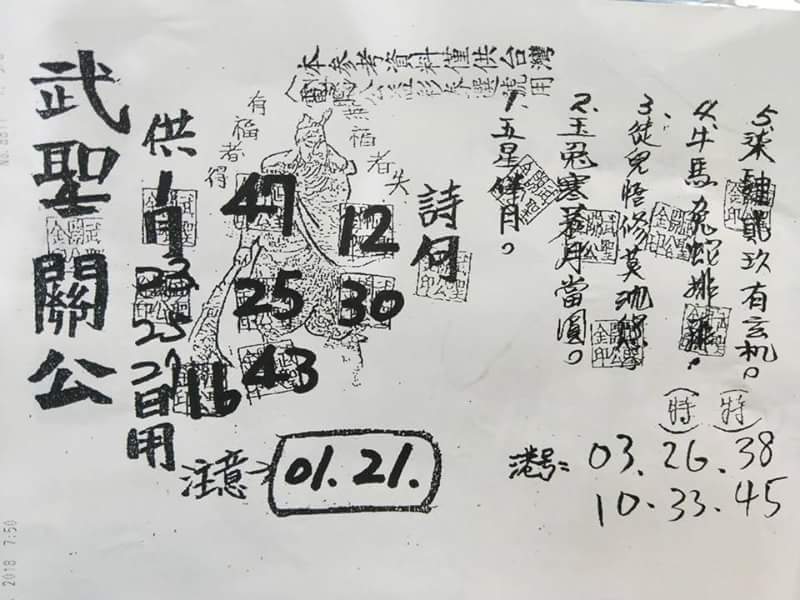 本參考資料僅供台灣
武聖關公
供1月23 25 27日用
有福者得
福者失
47
12
25
30
43
16
詩句
1.五星伴月。
2.玉兔寒宮月當圓。
3.徒兒悟修莫
4.牛馬兔蛇排
5.柒 貳玖有玄机。
(特)(特)
注意
01.21.
港号:03.26.38
10.33.45
2018 7:50